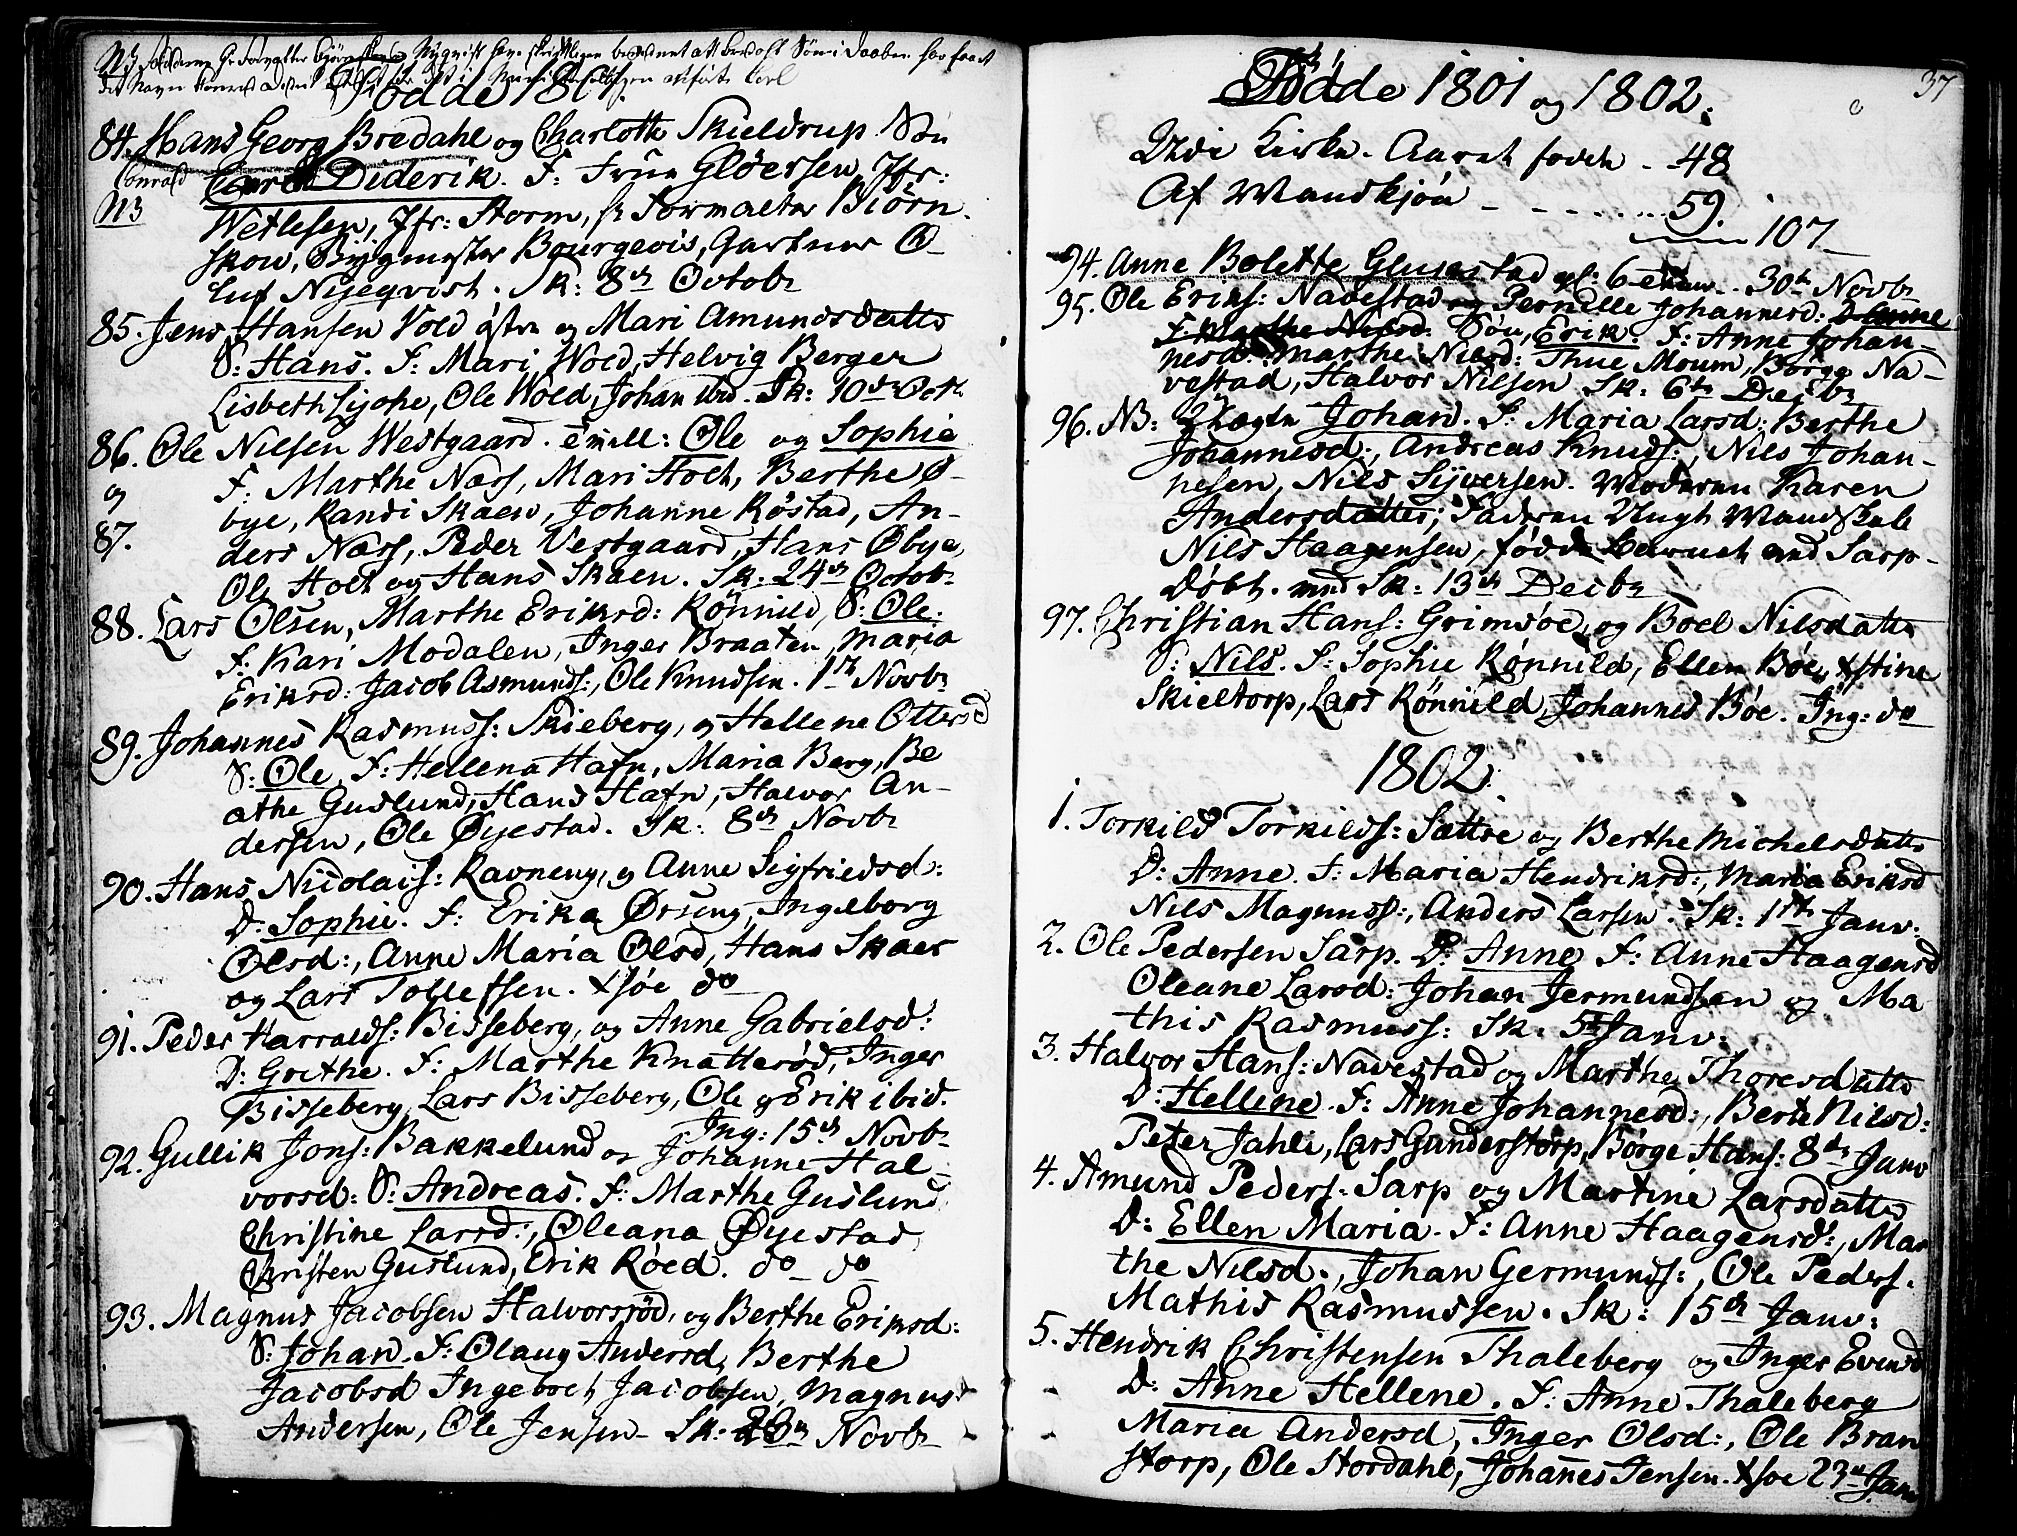 Fødde 1801.
84. Hans Georg Bredahl og Charlotte Skieldrup Søn
Conrad Diderik. F: Frue Glöersen, Jfr:
NB Wetlesen, Jfr: Storm, Hr Forvalter Biörn-
skow, Bygmester Bourgeois, Gartner O-
luf Nyeqvist. Sk: 8de Octobr
85. Jens Hansen Vold østre og Mari Amundsdatter
S: Hans. F: Mari Wold, Helvig Berger
Lisbeth Lyche, Ole Wold, Johan ibid. Sk: 10de Octb
86. Ole Nilsen Westgaard. Tvill: Ole og Sophie
og F: Marthe Næss, Mari Holt, Berthe Ø-
bye, Randi Skaen, Johanne Röstad, An-
87. ders Næss, Peder Vestgaard, Hans Øbye,
Ole Holt og Hans Skaen. Sk: 24de Octobr
88. Lars Olsen, Marthe Eriksd: Rönnild, S: Ole.
F: Kari Modalen, Inger Braaten, Maria
Eriksd: Jacob Asmunds:, Ole Knudsen. 1ste Novbr
89. Johannes Rasmuss: Skieberg, og Hellene Ottersd
S: Ole. F: Hellena Hafn, Maria Berg, Be
athe Guslund, Hans Hafn, Halvor An-
dersen, Ole Øyestad. Sk: 8de Novbr
90. Hans Nicolais: Ravneng, og Anne Sigfriedsd:
D: Sophie. F: Erika Ørseng, Ingeborg
Olsd:, Anne Maria Olsd, Hans Skaer
og Lars Tollefsen. Xsöe do
91. Peder Harralds: Bisseberg, og Anne Gabrielsd:
D: Grethe. F: Marthe Knatteröd, Inger
Bisseberg, Lars Bisseberg, Ole og Erik ibid.
Ing: 15de Novbr
92. Gullik Jons: Bakkelund og Johanne Hal-
vorsd: S: Andreas. F: Marthe Guslund
Christine Larsd:, Oleana Øyestad
Christen Guslund, Erik Röed. do do
93. Magnus Jacobsen Halvorsröd, og Berthe Eriksd:
S: Johan. F: Olaug Andersd, Berthe
Jacobsd Ingeboet Jacobsen, Magnus
Andersen, Ole Jensen. Sk: Novbr
37
Födde 1801 og 1802.
Udi Kirke-Aaret fødde - 48
Af Mandkjön - 59.
107
94. Anne Bolette Glugestad 30te Novbr
95. Ole Eriks: Navestad og Pernelle Johannesd: D: Anne
F: Marthe Nilsd. Sön, Erik. F: Anne Johan-
nesd: Marthe Nilsd: Thue Moum, Börge Na-
vestad, Halvor Nilsen Sk: 6te Decbr
96. NB: Uægte Johan. F: Maria Larsd: Berthe
Johannesd:, Andreas Knuds:, Nils Johan-
nesen, Nils Syversen. Moderen Karen
Andersdatter, Faderen Ungt Mandskab
Nils Haagensen, född Barnet ved Sarp-
Döbt. ved Sk: 13de Decbr
97. Christian Hans: Grimsöe, og Boel Nilsdatter
S: Nils. F: Sophie Rönnild, Ellen Böe, Xstine
Skieltorp, Lars Rönnild, Johannes Böe. Ing: do
1802.
1. Torkild Torkilds: Sættre og Berthe Michelsdatter
D: Anne. F: Maria Hendriksd:, Maria Eriksd
Nils Magnuss:, Anders Larsen. Sk: 1ste Janv:
2. Ole Pedersen Sarp. D: Anne F: Anne Haagensd
Oleane Larsd: Johan Jermundsen og Ma
this Rasmuss: Sk. 5te Janv:
3. Halvor Hans: Navestad og Marthe Thoresdatter
D: Hellene. F: Anne Johannesd:, Berte Nilsd:
Peter Jahli, Lars Gunderstorp, Börge Hans: 8de Janv
4. Amund Peders: Sarp og Martine Larsdatter
D: Ellen Maria. F: Anne Haagensd:, Mar
the Nilsd., Johan Germunds:, Ole Peders.
Mathis Rasmussen. Sk: 15de Janv:
5. Hendrik Christensen Thaleberg og Inger Evensd
D: Anne Hellene. F: Anne Thaleberg
Maria Andersd, Inger Olsd:, Ole Bran
storp, Ole Stordahl, Johanes Jensen. Xsoe 23de Jan